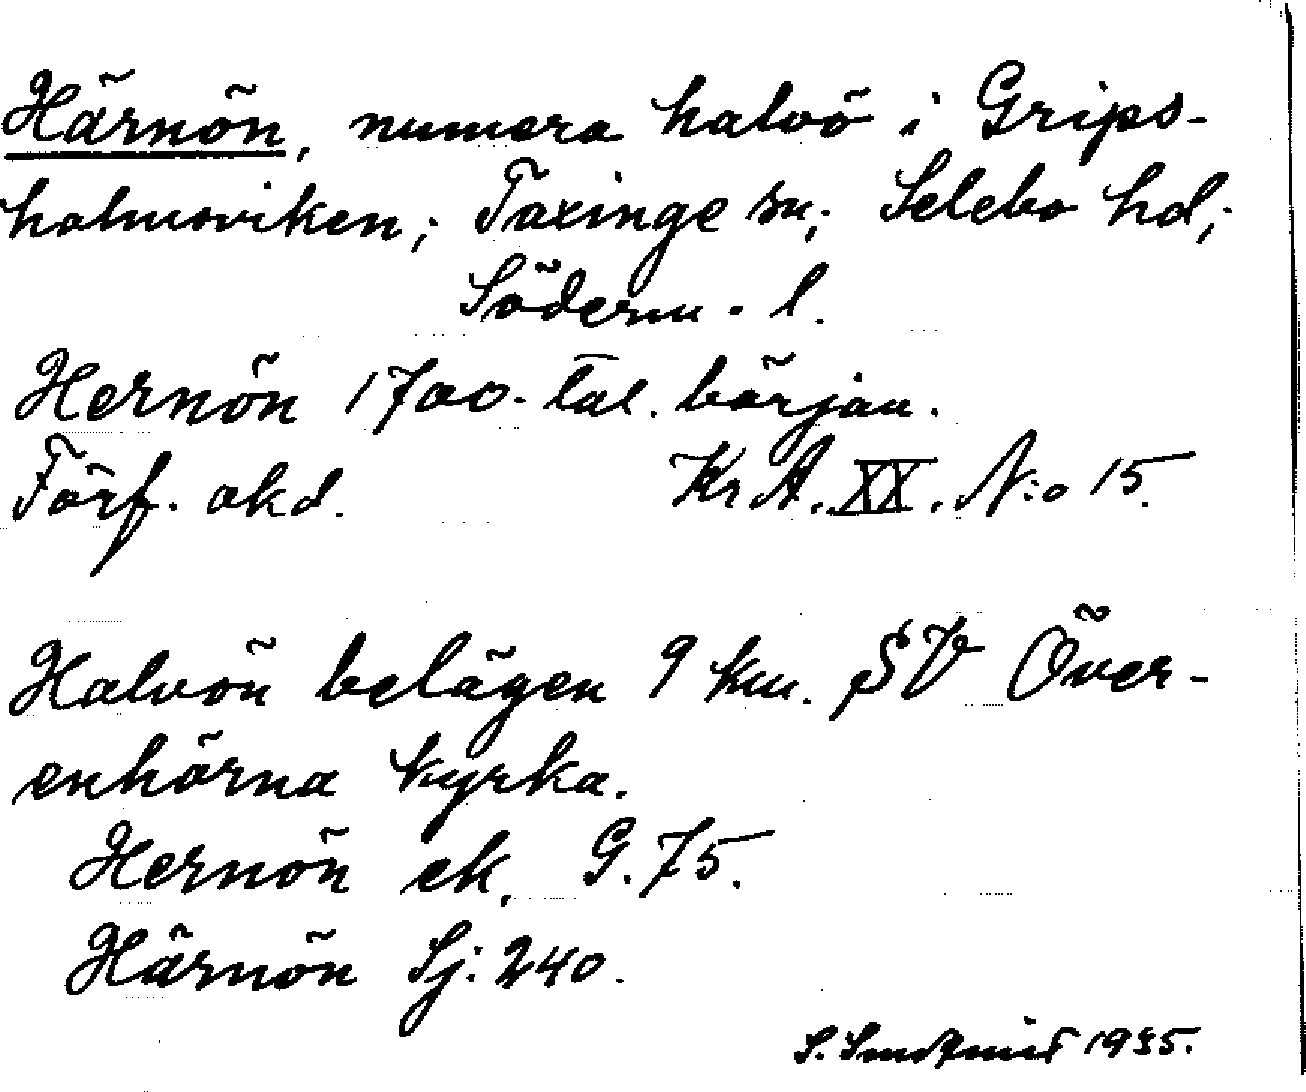 Härnön, numera halvö i Grips-
holmsviken; Taxinge sn; Selebo hd;
Söderm. l.
Hernön 1700-tal. början.
Förf. okd. KrA. XX. N:o 15.
Halvön belägen 9 km. SV Över-
enhörna kyrka.
Hernön ek. G. 75.
Härnön Sj: 240.
S. 1935.